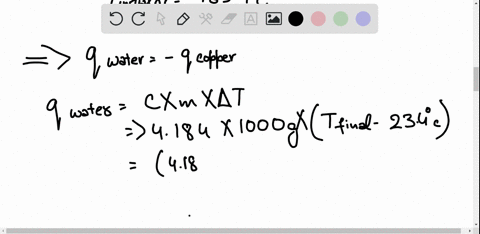 => q water = - q copper
q water = C X m X ΔT
=> 4.184 X 1000g X (T final - 23.4°c)
= (4.18